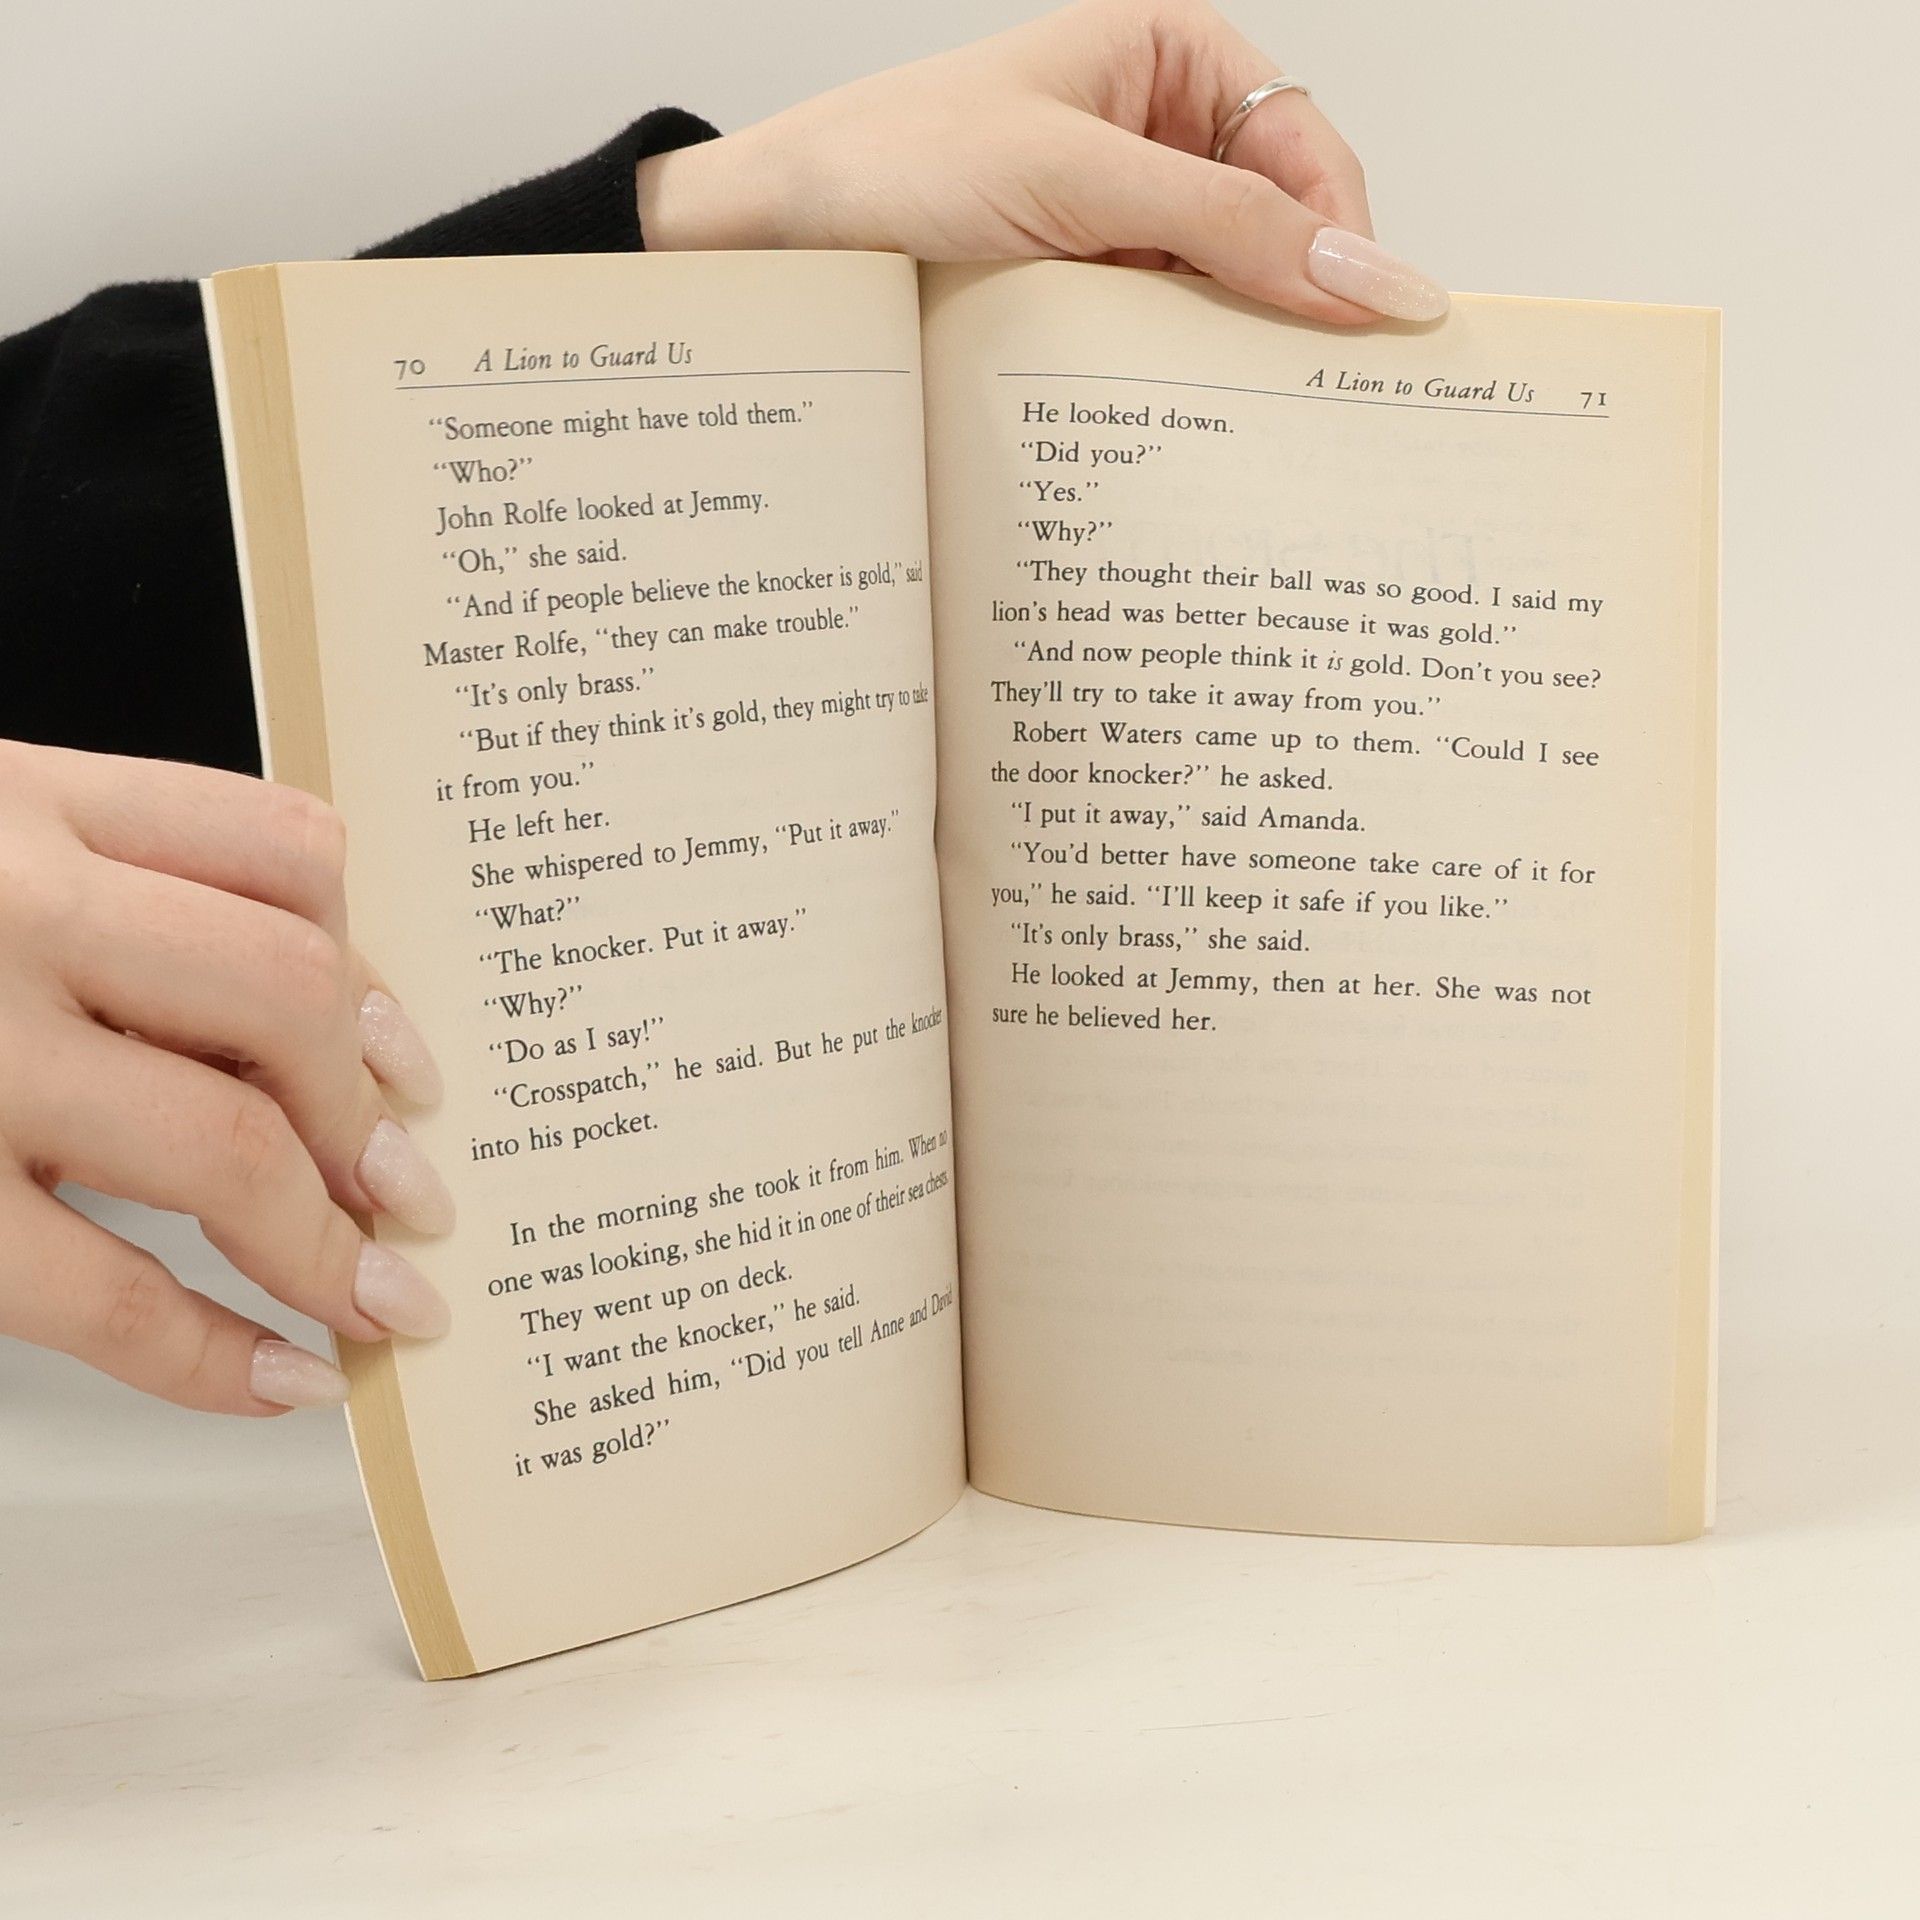 70 A Lion to Guard Us
“Someone might have told them.”
“Who?”
John Rolfe looked at Jemmy.
“Oh,” she said.
“And if people believe the knocker is gold,” said
Master Rolfe, “they can make trouble.”
“It’s only brass.”
“But if they think it’s gold, they might try to take
it from you.”
He left her.
She whispered to Jemmy, “Put it away.”
“What?”
“The knocker. Put it away.”
“Why?”
“Do as I say!”
“Crosspatch,” he said. But he put the knocker
into his pocket.
In the morning she took it from him. When no
one was looking, she hid it in one of their sea chests.
They went up on deck.
“I want the knocker,” he said.
She asked him, “Did you tell Anne and David
it was gold?”
A Lion to Guard Us 71
He looked down.
“Did you?”
“Yes.”
“Why?”
“They thought their ball was so good. I said my
lion’s head was better because it was gold.”
“And now people think it is gold. Don’t you see?
They’ll try to take it away from you.”
Robert Waters came up to them. “Could I see
the door knocker?” he asked.
“I put it away,” said Amanda.
“You’d better have someone take care of it for
you,” he said. “I’ll keep it safe if you like.”
“It’s only brass,” she said.
He looked at Jemmy, then at her. She was not
sure he believed her.